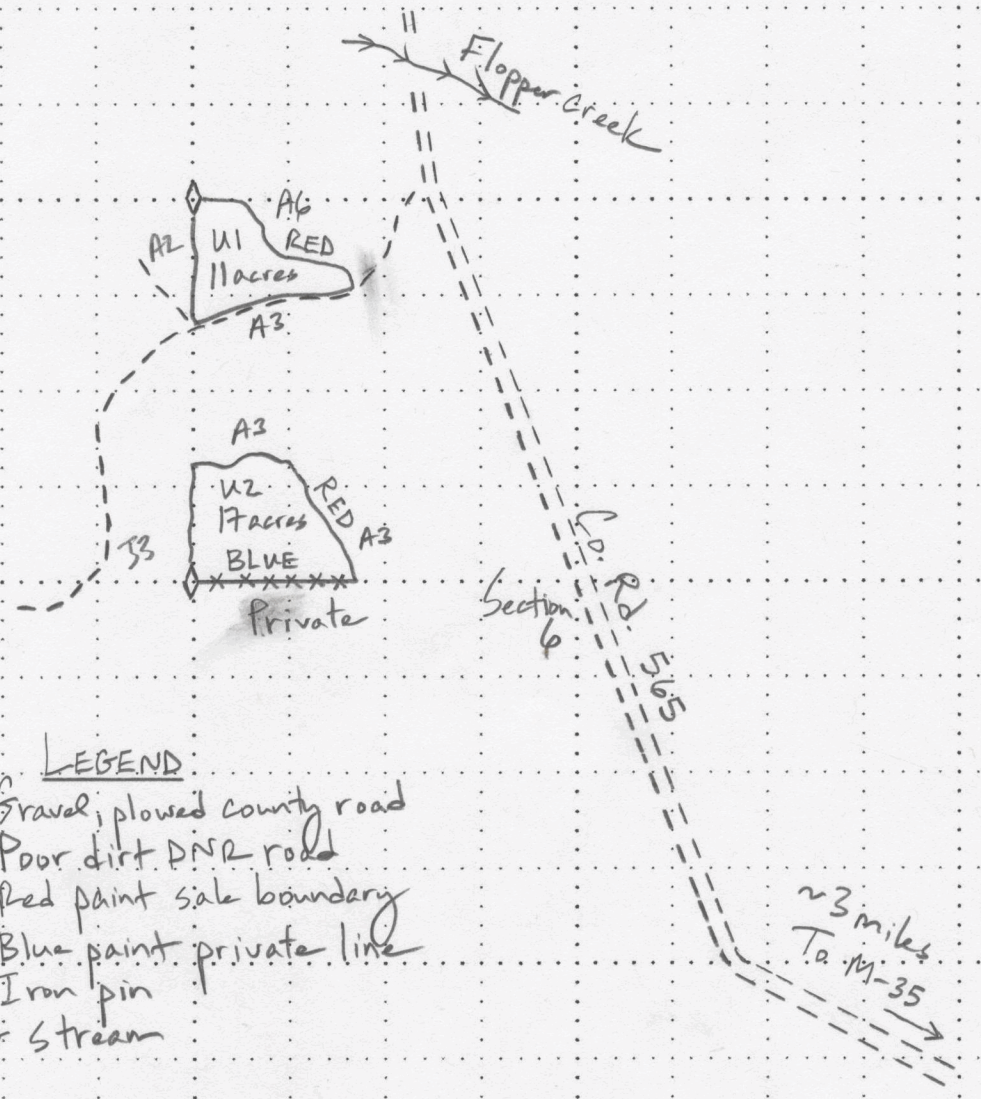 Flopper Creek
A6
RED
A2
U1
11 acres
A3
A3
U2
17 acres
RED
A3
BLUE
Private
J3
Section
6
Co. Rd 565
LEGEND
Gravel, plowed county road
Poor dirt DNR road
Red paint sale boundary
Blue paint private line
Iron pin
stream
~3 miles
To M-35